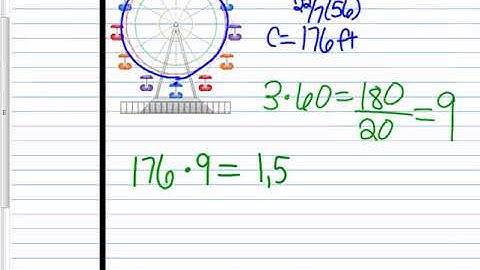 22/7(56)
C=176ft
3·60=180/20=9
176·9=1,5